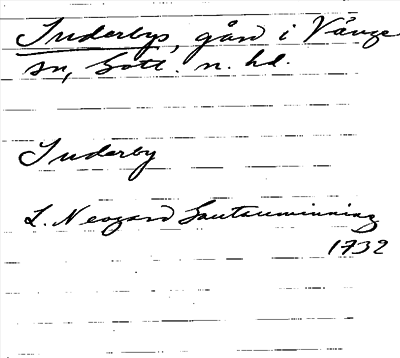 Suderbys, gård i Vänge
sn, Gotl. n. hd.
Suderby
L. Neogard Gautauminning
1732